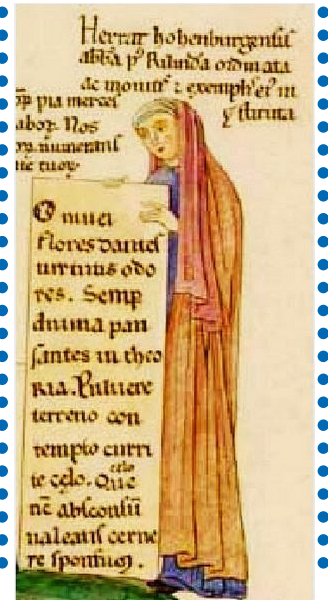 Herrat hohenburgensis
abba p' Rilinda ordinata
ac monitis & exemplis ei' in
stituta
pia merces
labor. Nos
numerans
O nivei
flores dantes
virtutis odo
res. Semp
divina pau
santes in theo
ria. Pulvere
terreno con
tempto curri
te celo. Que
nc absconsu
valeatis cerne
re sponsum.